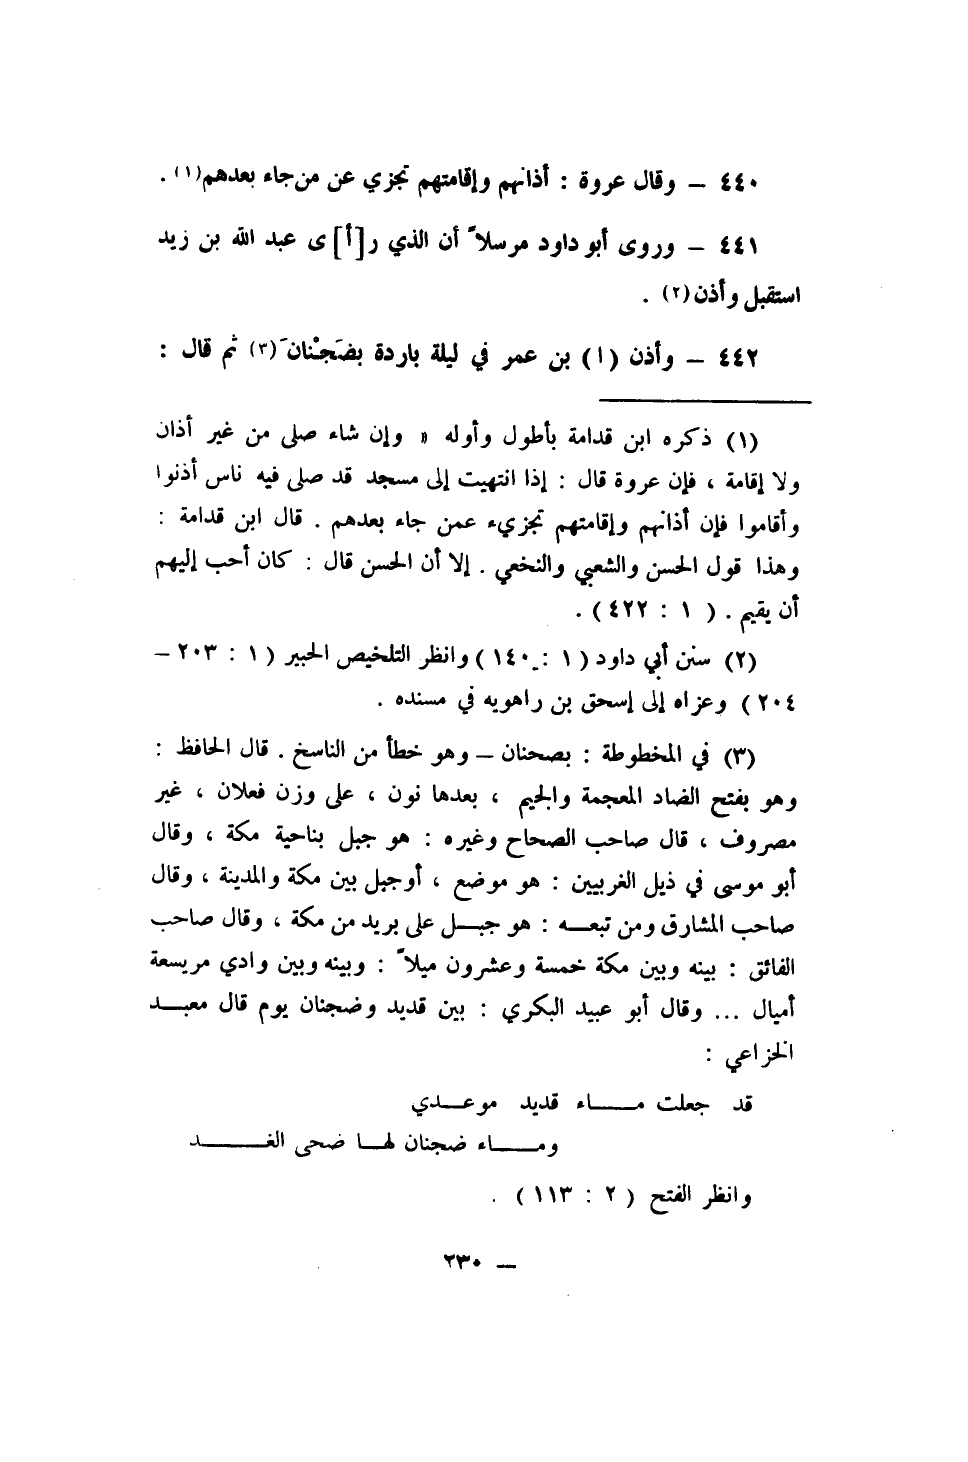 ٤٤٠ – وقال عروة : أذانهم وإقامتهم تجزي عن من جاء بعدهم(١) .
٤٤١ – وروى أبو داود مرسلاً أن الذي ر[أ]ى عبد الله بن زيد
استقبل وأذن(٢) .
٤٤٢ – وأذن (ا) بن عمر في ليلة باردة بضَجْنانَ(٣) ثم قال :
(١) ذكره ابن قدامة بأطول وأوله « وإن شاء صلى من غير أذان
ولا إقامة ، فإن عروة قال : إذا انتهيت إلى مسجد قد صلى فيه ناس أذنوا
وأقاموا فإن أذانهم وإقامتهم تجزيء عمن جاء بعدهم . قال ابن قدامة :
وهذا قول الحسن والشعبي والنخعي . إلا أن الحسن قال : كان أحب إليهم
أن يقيم . ( ١ : ٤٢٢ ) .
(٢) سنن أبي داود ( ١ : ١٤٠ ) وانظر التلخيص الحبير ( ١ : ٢٠٣ –
٢٠٤ ) وعزاه إلى إسحق بن راهويه في مسنده .
(٣) في المخطوطة : بصحنان – وهو خطأ من الناسخ . قال الحافظ :
وهو بفتح الضاد المعجمة والجيم ، بعدها نون ، على وزن فعلان ، غير
مصروف ، قال صاحب الصحاح وغيره : هو جبل بناحية مكة ، وقال
أبو موسى في ذيل الغريبين : هو موضع ، أوجبل بين مكة والمدينة ، وقال
صاحب المشارق ومن تبعه : هو جبل على بريد من مكة ، وقال صاحب
الفائق : بينه وبين مكة خمسة وعشرون ميلاً : وبينه وبين وادي مريسعة
أميال ... وقال أبو عبيد البكري : بين قديد وضجنان يوم قال معبد
الخزاعي :
قد جعلت ماء قديد موعدي
وماء ضجنان لها ضحى الغد
وانظر الفتح ( ٢ : ١١٣ ) .
– ٢٣٠